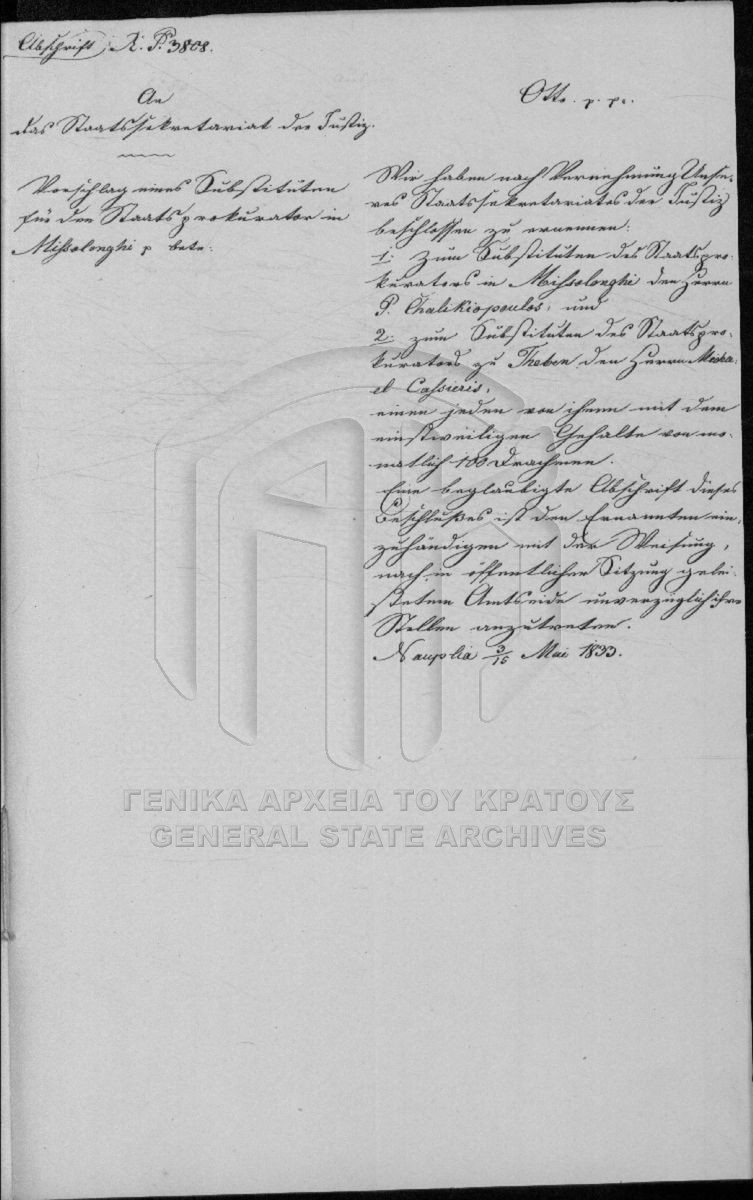 Abschrift R. P. 3808.
An
das Staatssekretariat der Justiz.
Vorschlag eines Substituten
für den Staatsprokurator in
Missolonghi p betr.
Otto p. p.
Wir haben nach Vernehmung Unse-
res Staatssekretariates der Justiz
beschlossen zu ernennen:
1. zum Substituten des Staatspro-
kurators in Missolonghi den Herrn
P. Chalikiopoulos, und
2. zum Substituten des Staatspro-
kurators zu Theben den Herrn Micha-
el Cassieris,
einen jeden von ihnen mit dem
einstweiligen Gehalte von mo-
natlich 100 Drachmen.
Eine beglaubigte Abschrift dieses
Beschlußes ist den Ernannten ein-
zuhändigen mit der Weisung,
nach in öffentlicher Sitzung gelei-
stetem Amtseide unverzüglich ihre
Stellen anzutreten.
Nauplia 3/15 Mai 1833.
ΓΕΝΙΚΑ ΑΡΧΕΙΑ ΤΟΥ ΚΡΑΤΟΥΣ
GENERAL STATE ARCHIVES